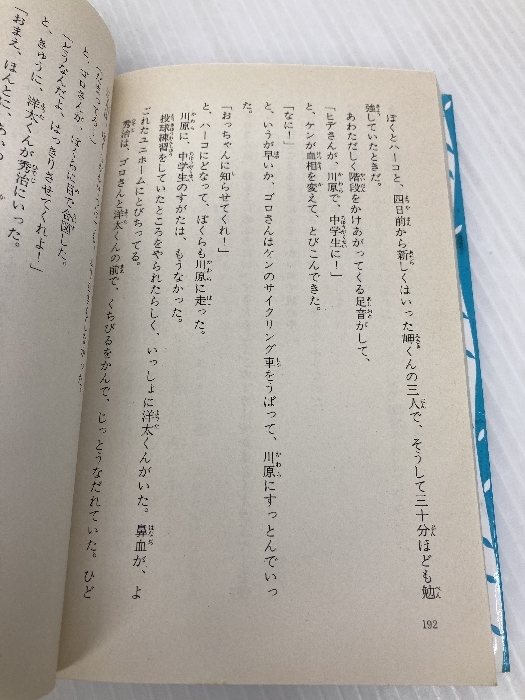 ぼくとハーコと、四日前から新しくはいった岬くんの三人で、そうして三十分ほども勉
強していたときだ。
あわただしく階段をかけあがってくる足音がして、
「ヒデさんが、川原で、中学生に！」
と、ケンが血相を変えて、とびこんできた。
「なに！」
と、いうが早いか、ゴロさんはケンのサイクリング車をうばって、川原にすっとんでいっ
た。
「おっちゃんに知らせてくれ！」
と、ハーコにどなって、ぼくらも川原に走った。
川原に、中学生のすがたは、もうなかった。
投球練習をしていたところをやられたらしく、いっしょに洋太くんがいた。鼻血が、よ
ごれたユニホームにとびちってる。
秀治は、ゴロさんと洋太くんの前で、くちびるをかんで、じっとうなだれていた。ひど
と、ゴロさんが、ぼくらに目で合図した。
「どうなんだよ、はっきりさせてくれよ！」
と、きゅうに、洋太くんが秀治にいった。
「おまえ、ほんとに、
192